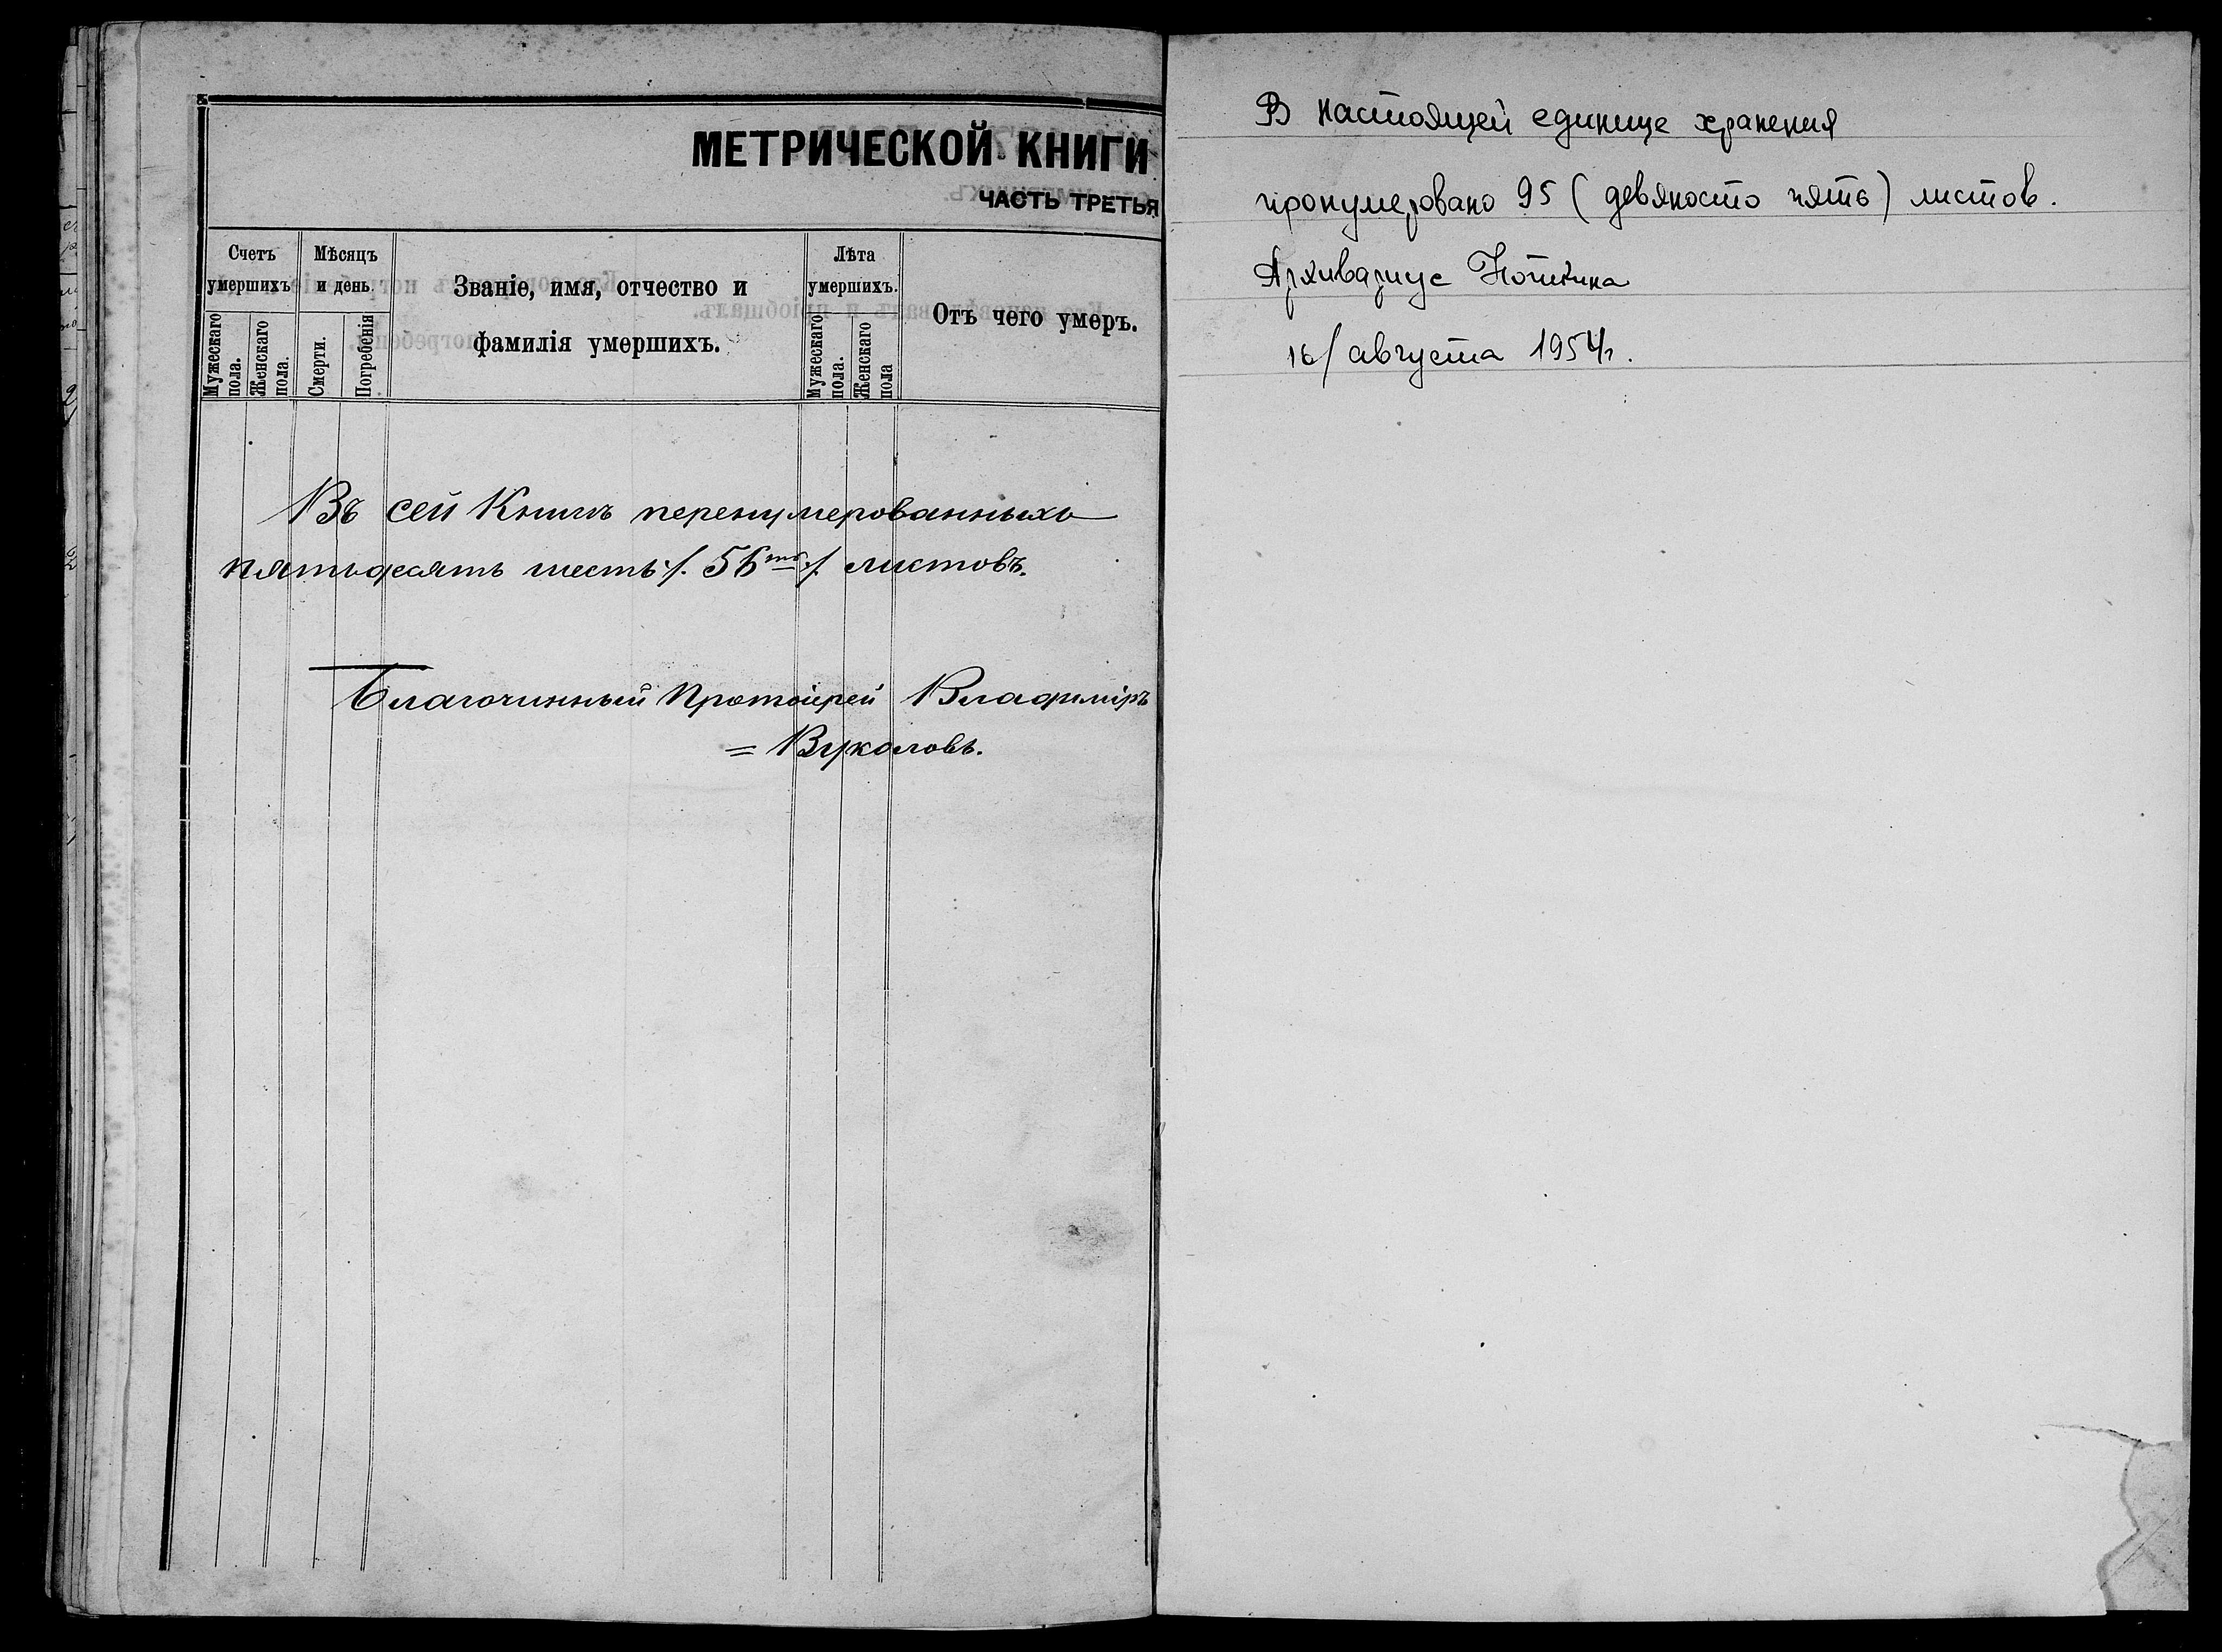 МЕТРИЧЕСКОЙ КНИГИ
ЧАСТЬ ТРЕТЬЯ
Счетъ умершихъ
Мужескаго пола.
Женскаго пола.
Мѣсяцъ и день.
Смерти.
Погребенія
Званіе, имя, отчество и
фамилія умершихъ.
Лѣта умершихъ.
Мужескаго пола.
Женскаго пола
Отъ чего умеръ.
Въ сей Книгѣ перенумерованныхъ
пятьдесятъ шесть ./. 56ть ./. листовъ.
Благочинный Протоіерей Владиміръ
= Вуколовъ.
В настоящей единице хранения
пронумеровано 95 (девяносто пять) листов.
Архивариус
16/ августа 1954г.